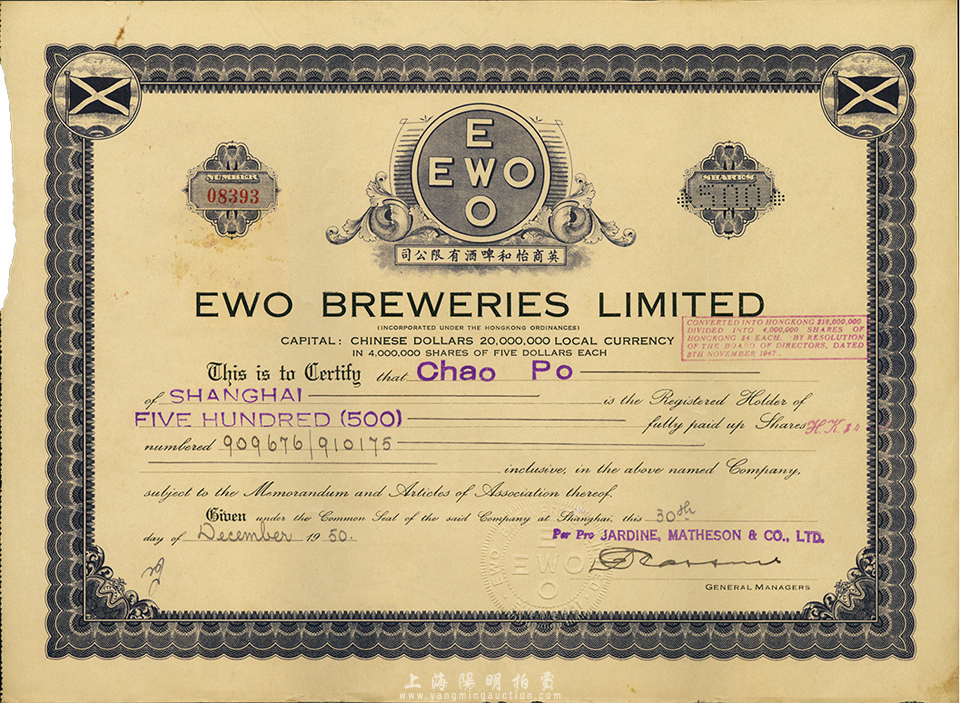 E
EWO
O
NUMBER
08393
SHARES
500
司公限有酒啤和怡商英
EWO BREWERIES LIMITED
(INCORPORATED UNDER THE HONGKONG ORDINANCES)
CAPITAL: CHINESE DOLLARS 20,000,000 LOCAL CURRENCY
IN 4,000,000 SHARES OF FIVE DOLLARS EACH
CONVERTED INTO HONGKONG $16,000,000
DIVIDED INTO 4,000,000 SHARES OF
HONGKONG $4 EACH. BY RESOLUTION
OF THE BOARD OF DIRECTORS, DATED
8TH NOVEMBER 1947.
This is to Certify that Chao Po
of SHANGHAI is the Registered Holder of
FIVE HUNDRED (500) fully paid up Shares H.K $4
numbered 909676/910175
inclusive, in the above named Company,
subject to the Memorandum and Articles of Association thereof.
Given under the Common Seal of the said Company at Shanghai, this 30th
day of December 1950.
Per Pro JARDINE, MATHESON & CO., LTD.
GENERAL MANAGERS
E
EWO
O
上海陽明拍賣
www.yangmingauction.com